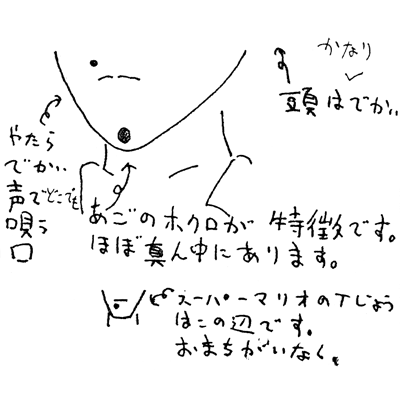 かなり
頭はでかい
やたら
でかい
声でどこでも
唄う
口
あごのホクロが特徴です。
ほぼ真ん中にあります。
スーパーマリオのTじょう
はこの辺です。
おまちがいなく。